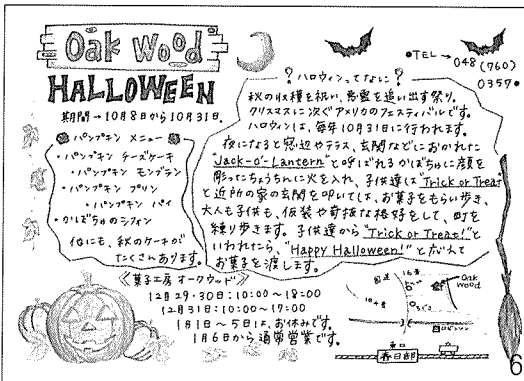 Oak Wood
HALLOWEEN
期間→10月8日から10月31日.
パンプキン メニュー
・パンプキン チーズケーキ
・パンプキン モンブラン
・パンプキン プリン
・パンプキン パイ
・かぼちゃのシフォン
他にも、秋のケーキが
たくさんあります。
●TEL→
048(760)
0357●
?ハロウィンってなに?
秋の収穫を祝い、悪霊を追い出す祭り。
クリスマスに次ぐアメリカのフェスティバルです。
ハロウィンは、毎年10月31日に行われます。
夜になると窓辺やテラス、玄関などにおかれた
"Jack-o'-Lantern"と呼ばれるかぼちゃに顔を
彫ったちょうちんに火を入れ、子供達は"Trick or Treat"
と近所の家の玄関を叩いては、お菓子をもらい歩き、
大人も子供も、仮装や奇抜な格好をして、町を
練り歩きます。子供達から"Trick or Treat!"と
いわれたら、"Happy Halloween!"と
お菓子を渡します。
《菓子工房 オークウッド》
12月29・30日:10:00〜18:00
12月31日:10:00〜17:00
1月1日〜5日は、お休みです。
1月6日から通常営業です。
16号
Oak
Wood
東口
春日部
6